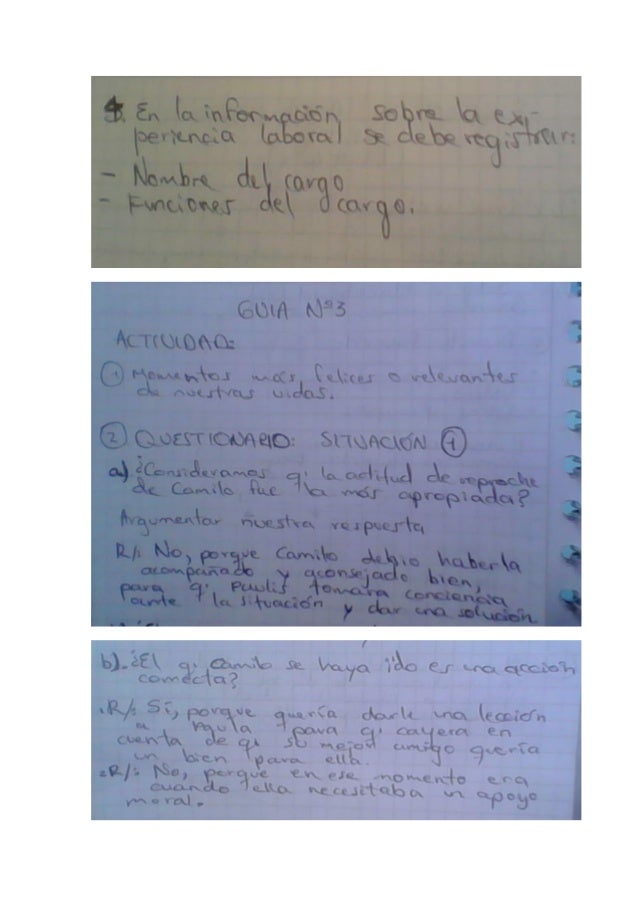 5. En la información sobre la ex-
periencia laboral se debe registrar:
- Nombre del cargo
- Funciones del cargo.
GUIA Nº3
ACTIVIDAD:
① Momentos más felices o relevantes
de nuestras vidas.
② QUESTIONARIO: SITUACIÓN ①
a) ¿Consideramos q' la actitud de reproche
de Camilo fue la más apropiada?
Argumentar nuestra respuesta
R/: No, porque Camilo debio haberla
acompañado y aconsejado bien,
para q' Paulis tomara conciencia
ante la situación y dar una solución
b).¿El q. Camilo se haya ido es una acción
correcta?
.R/: Sí, porque quería darle una lección
a Paula para q' cayera en
cuenta de q' su mejor amigo quería
un bien para ella.
.R/: No, porque en ese momento era
cuando ella necesitaba un apoyo
moral.